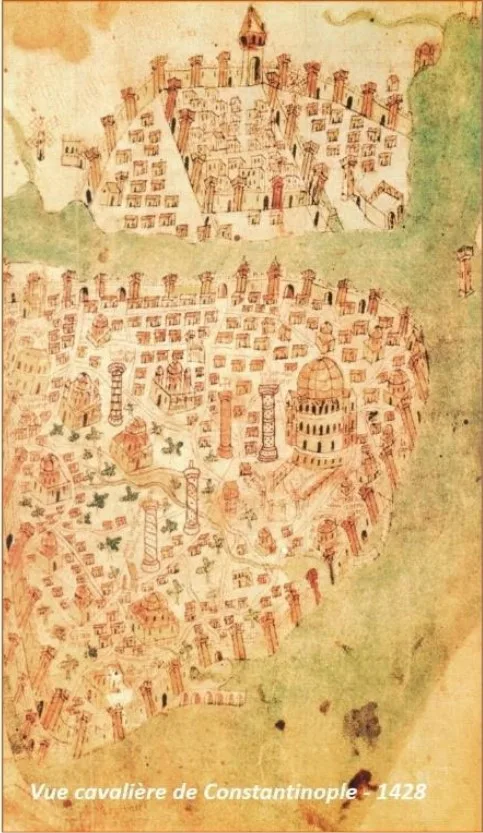 Vue cavalière de Constantinople - 1428